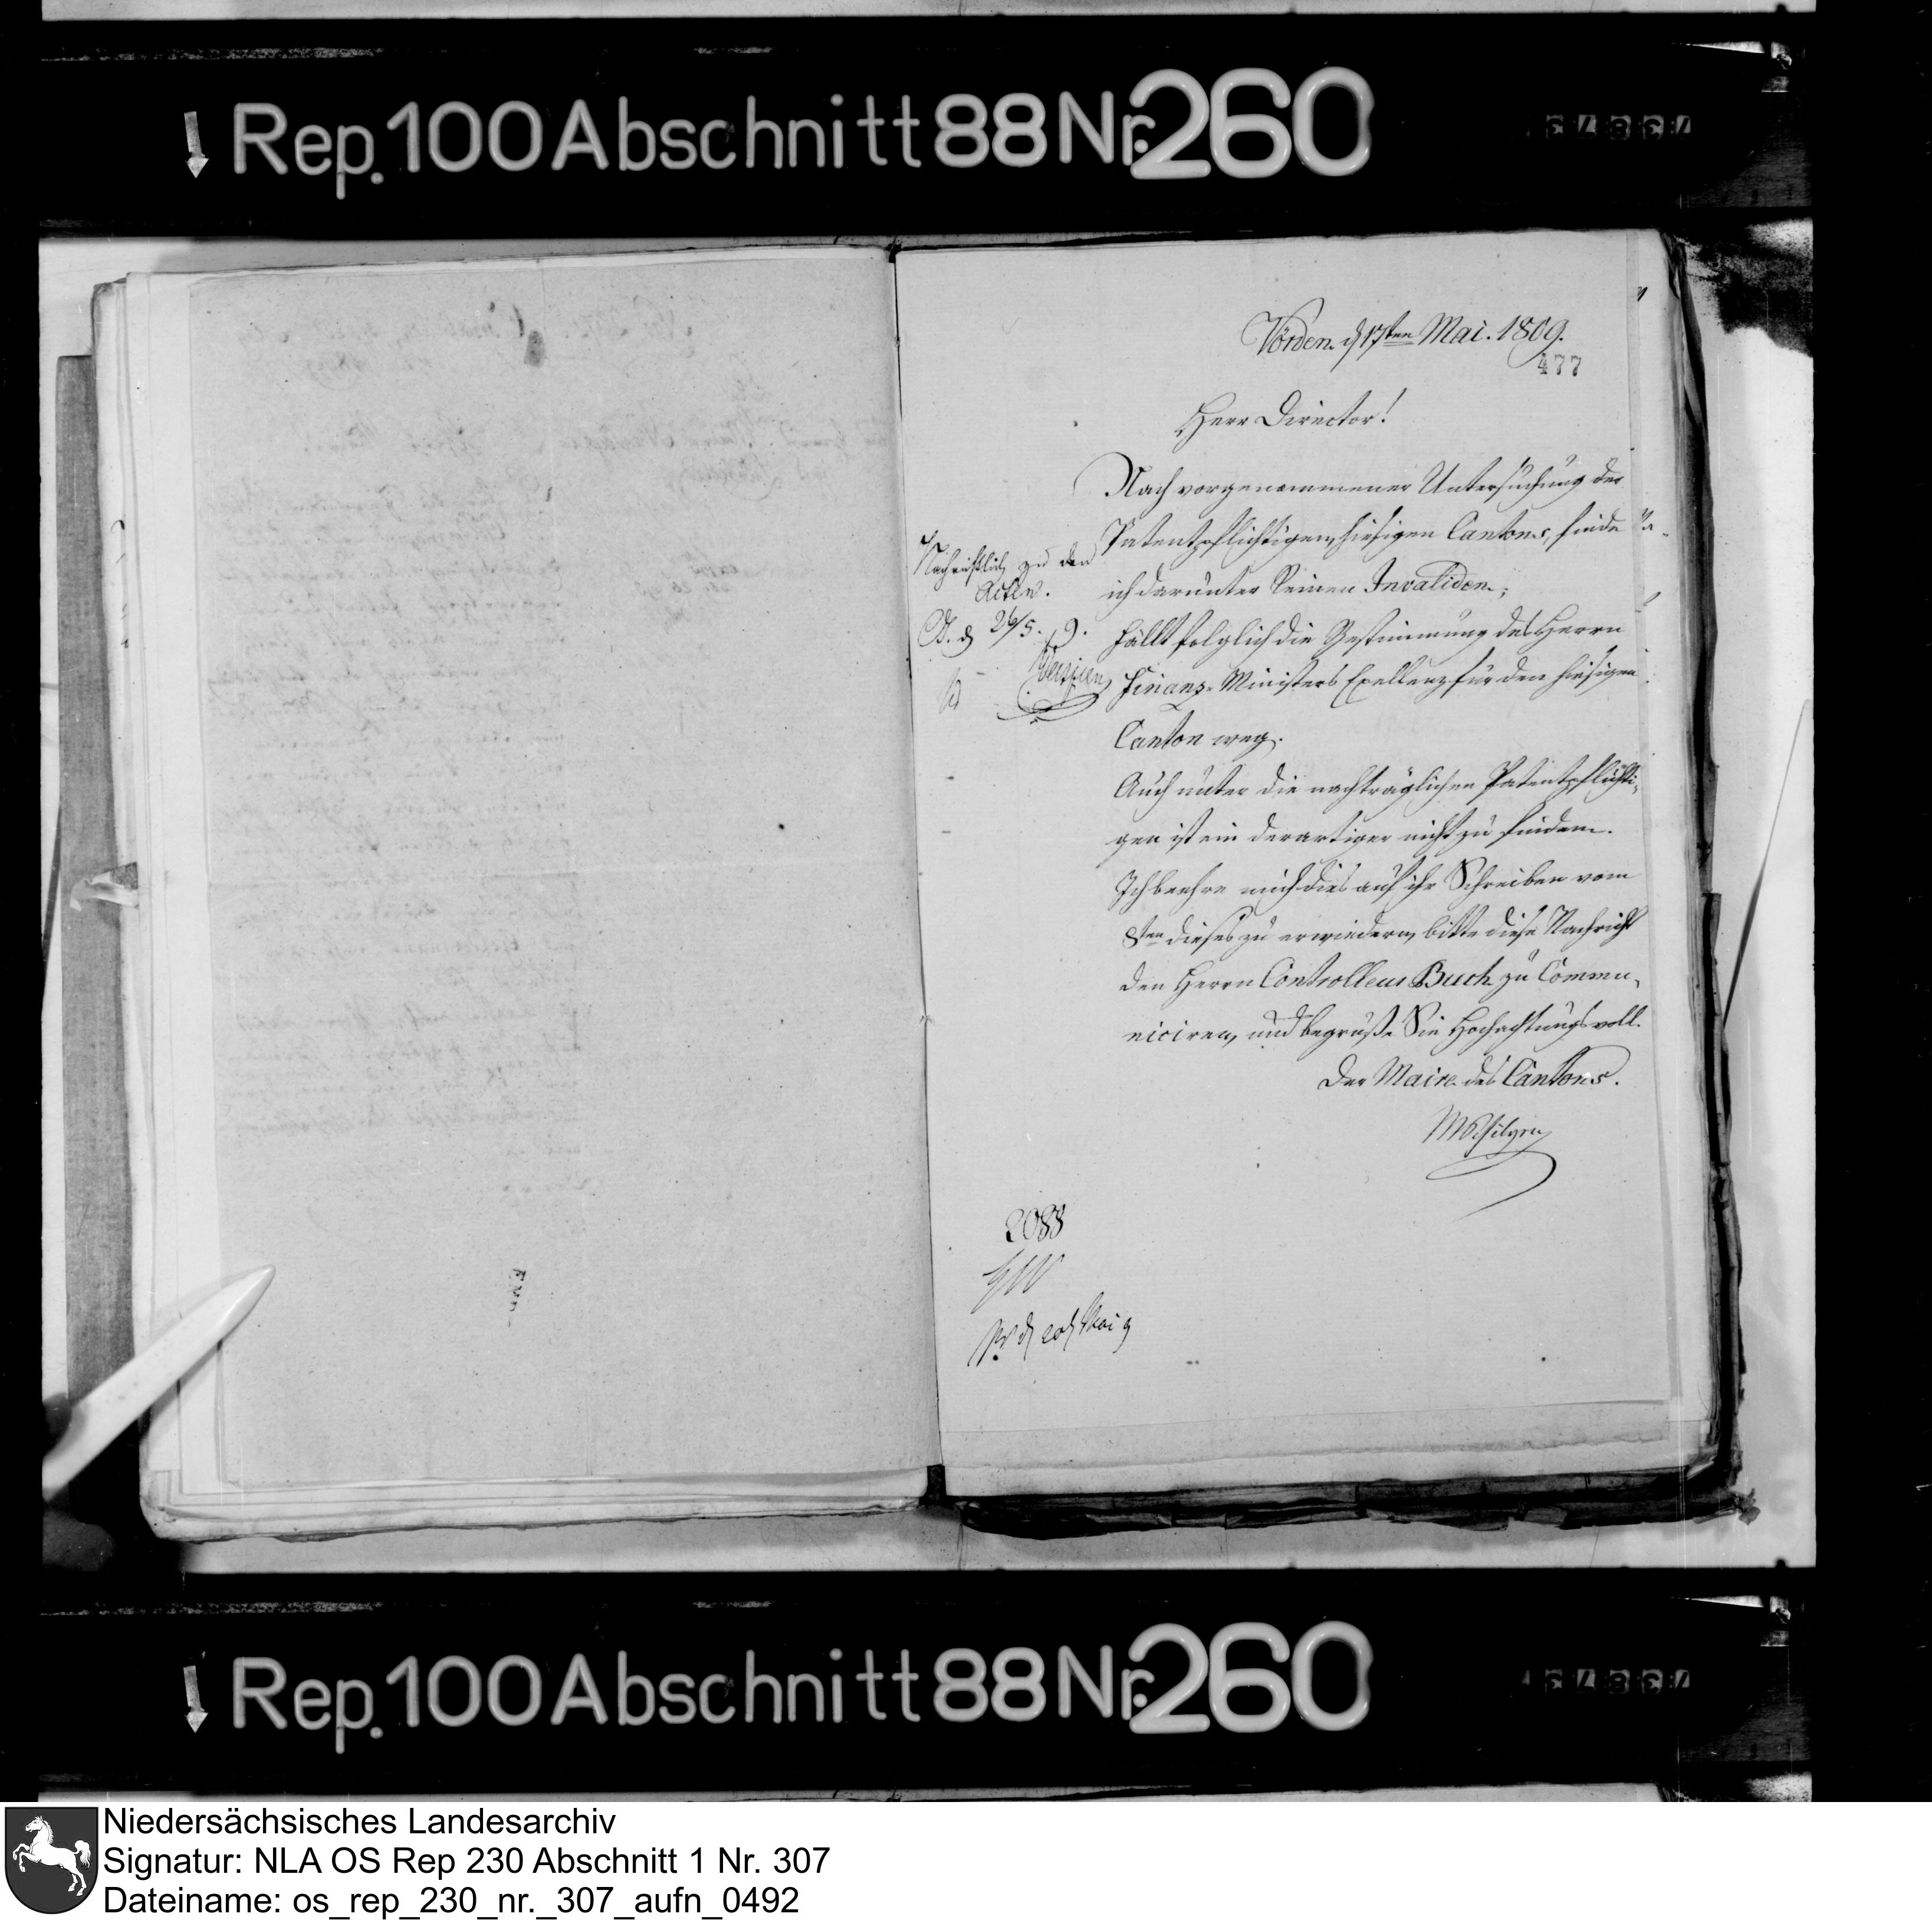 Rep. 100 Abschnitt 88 Nr. 260
Vörden d 17ten Mai. 1809.
477
Herr Director!
Nach vorgenommener Untersuchung der
Patentpflichtigen hiesigen Cantons, finde
ich darunter keinen Invaliden;
fällt folglich die Bestimmung des Herrn
Finanz-Ministers Exellenz für den hiesigen
Canton weg.
Auch unter die nachträglichen Patentpflichti-
gen ist ein derartiger nicht zu finden.
Ich beehre mich dies auf ihr Schreiben vom
8ten dieses zu erwiedern, bitte diese Nachricht
den Herrn Controlleur Buch zu Commu-
niciren, und begrüße Sie Hochachtungsvoll.
Der Maire des Cantons.
Nachrichtlich zu den
Acten.
O. d 26/5. 9.
2088
Pr d 20t Mai 9
Rep. 100 Abschnitt 88 Nr. 260
Niedersächsisches Landesarchiv
Signatur: NLA OS Rep 230 Abschnitt 1 Nr. 307
Dateiname: os_rep_230_nr._307_aufn_0492